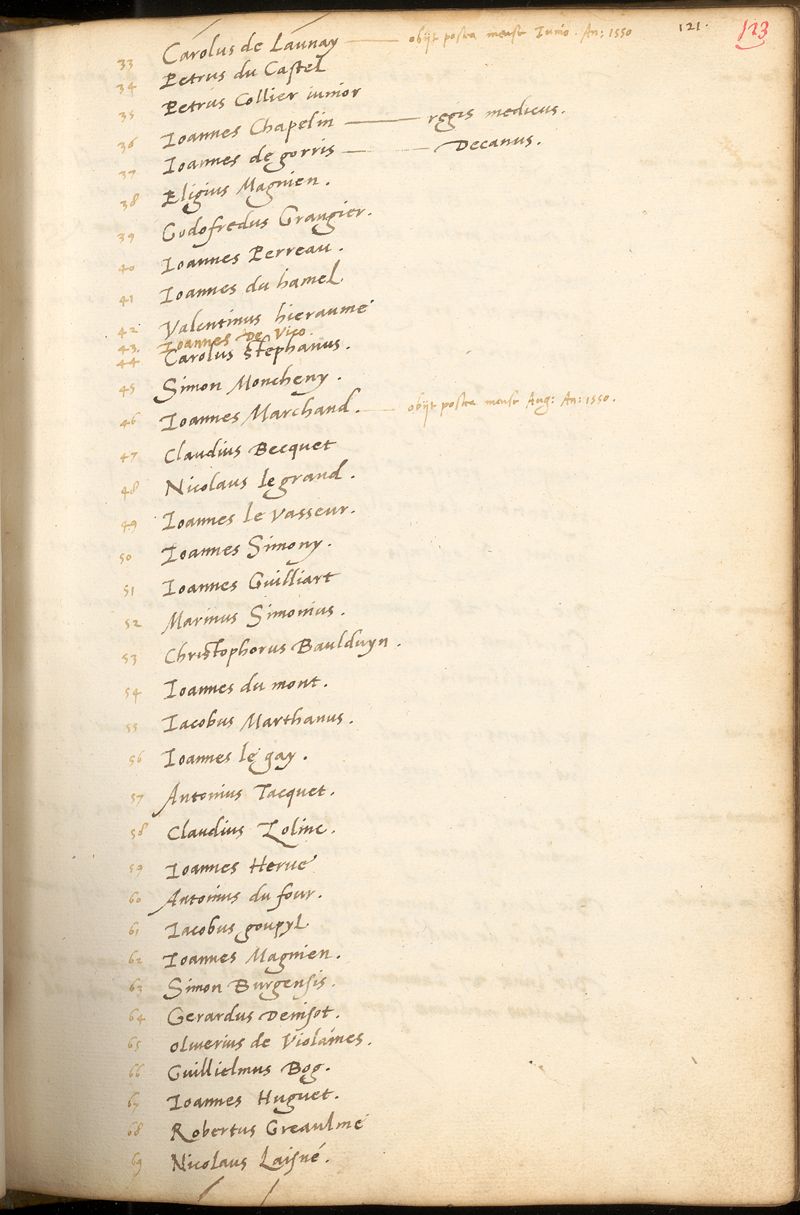 121. 123
33 Carolus de Launay — obijt postea mense Iunio. An: 1550
34 Petrus du Castel
35 Petrus Collier iunior
36 Ioannes Chapelin — regis medicus.
37 Ioannes de gorris — Decanus.
38 Eligius Magnien.
39 Godofredus Grangier.
40 Ioannes Perreau.
41 Ioannes du hamel
42 Valentinus hieraume
43. Ioannes De Vico.
44 Carolus Stephanus.
45 Simon Moncheny.
46 Ioannes Marchand. — obijt postea mense Aug: An: 1550.
47 Claudius Becquet
48 Nicolaus le grand.
49 Ioannes le Vasseur.
50 Ioannes Simony.
51 Ioannes Guilliart
52 Marinus Simonius.
53 Christophorus Baulduyn.
54 Ioannes du mont.
55 Iacobus Marthanus.
56 Ioannes le gay.
57 Antonius Tacquet.
58 Claudius Loline.
59 Ioannes Herve
60 Antonius du four.
61 Iacobus goupyl
62 Ioannes Magnien.
63 Simon Burgensis.
64 Gerardus Denisot.
65 oliverius de Violaines.
66 Guillielmus Bog.
67 Ioannes Huguet.
68 Robertus Greaulme
69 Nicolaus Laisné.